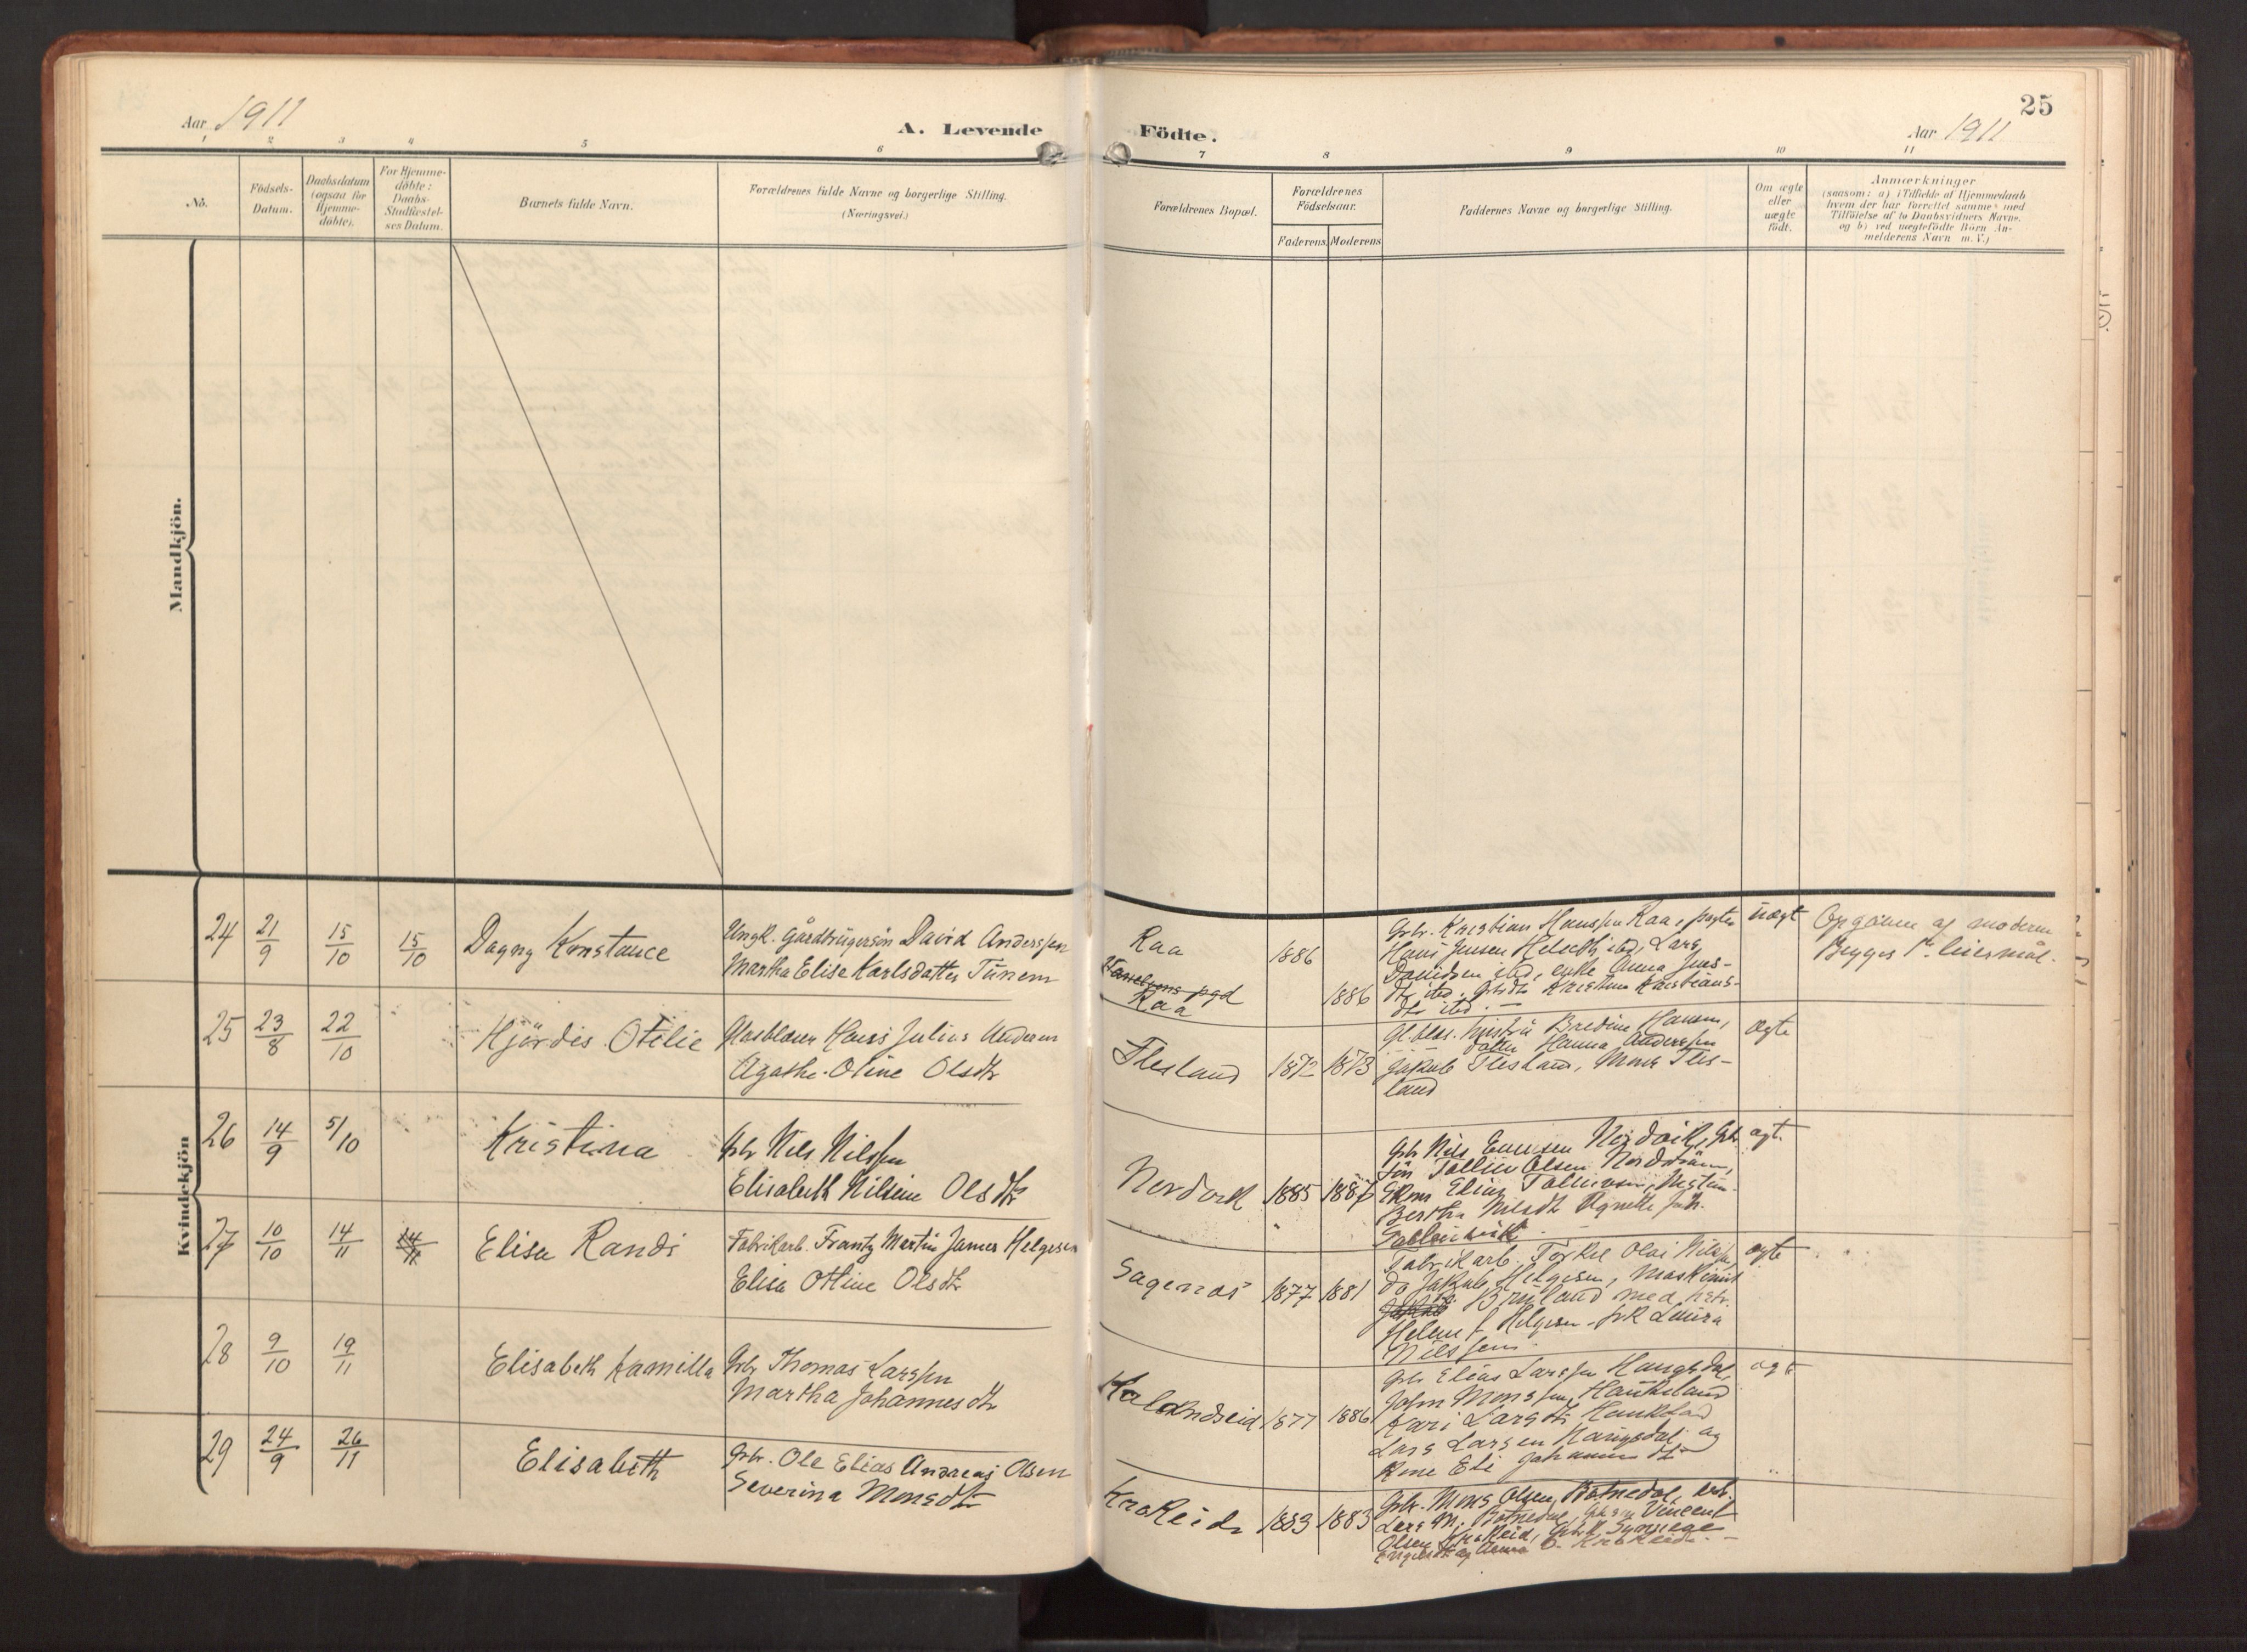 25
Aar 1911
A. Levende
Födte.
Aar 1911
1 2 3 4 5 6
7 8 9 10 11
No.
Födsels-
Datum.
Daabsdatum
(ogsaa for
Hjemme-
döbte).
For Hjemme-
döbte:
Daabs-
Stadfæstel-
ses Datum.
Barnets fulde Navn.
Forældrenes fulde Navne og borgerlige Stilling.
(Næringsvei.)
Forældrenes Bopæl.
Forældrenes
Födselsaar.
Faderens. Moderens
Faddernes Navne og borgerlige Stilling.
Om ægte
eller
uægte
födt.
Anmærkninger
(saasom: a) i Tilfælde af Hjemmedaab
hvem der har forrettet samme med
Tilföielse af to Daabsvidners Navne.
og b) ved uægtefödte Börn An-
melderens Navn m. V.)
Mandkjön.
Kvindekjön
24 21/9 15/10 15/10 Dagny Konstance
Ungk. Gårdbrugersön David Anderssen
Martha Elise Karlsdatter Tunem
Raa
pgd
Raa
1886
1886
Gbr. Kristian Hanssen Raa,
Hans Jensen ibd, Lars
Davidsen ibd, enke Anna Jens-
dtr ibd. Kristians-
dtr ibd.
uægt
Opgåvne af moderen
Begges 1ste leiermål.
25 23/8 22/10 Hjördis Otilie
Glasblåser Hans Julius Andersen
Agathe Oline Olsdtr
Flesland
1872 1873
Gl.blås. hustru Bredine Hansen,
Hanna Anderssen
Jakob Flesland, Mons Fles-
land
ægte
26 14/9 5/10 Kristina
Gbr Nils Nilssen
Elisabeth Nilsine Olsdtr
Nordvik
1885 1887
Gbr Nils Nordvik, Gbr
sön Tollev Olsen
Elias
Bertha Nilsdtr
ægt.
27 10/10 14/11 14/11 Elisa Randi
Fabrikarb. Frantz Martin James Helgesen
Elisa Ottine Olsdtr
Sagenæs
1877 1881
Fabrikarb. Torkel Olai Nilssen,
do Jakob Helgesen, maskinist
med hstr.
Helene f. Helgesen - frk Laura
Nilssen.
ægte
28 9/10 19/11 Elisabeth Kamilla
Gbr Thomas Larssen
Martha Johannesdtr
Kalandseid
1877 1886
Gbr Elias Larssen Haugsdal,
John Monssen, Haukeland
Kari Larsdtr Haukeland
Lars Larsen Haugsdal og
Kone Eli Johannesdtr
ægt
29 24/9 26/11 Elisabeth
Gbr. Ole Elias Andreas Olsen
Severina Monsdtr
Krokeide
1883 1883
Gbr. Mons Olsen Botnedal,
Lars M. Botnedal, Vincent
Olsen Krokeid,
og Anna O. Krokeide